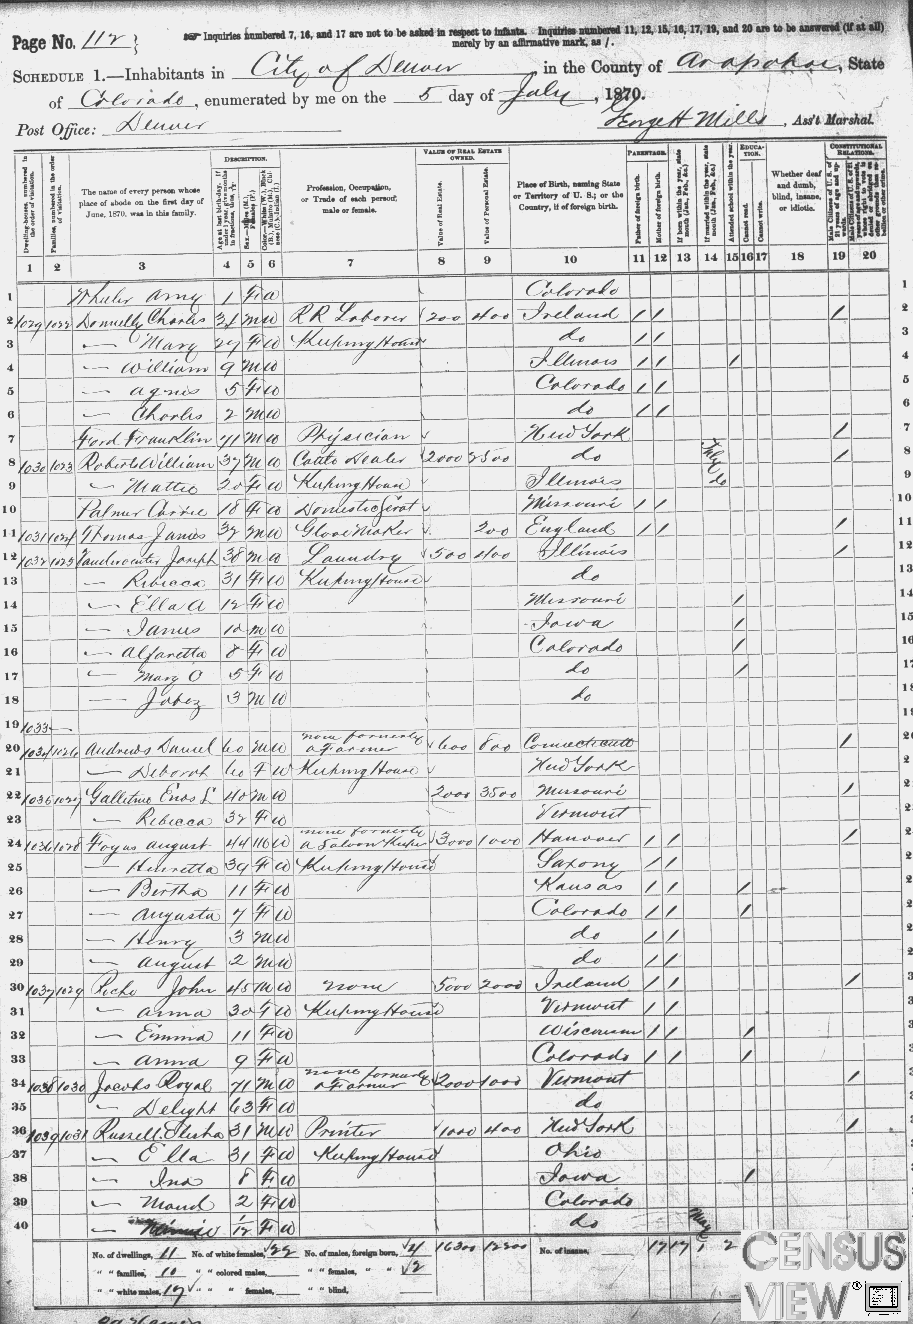 Page No. 112
Inquiries numbered 7, 16, and 17 are not to be asked in respect to infants. Inquiries numbered 11, 12, 15, 16, 17, 19, and 20 are to be answered (if at all)
merely by an affirmative mark, as /.
SCHEDULE 1.—Inhabitants in City of Denver, in the County of Arapahoe, State
of Colorado, enumerated by me on the 5 day of July, 1870.
Post Office: Denver George H Mills, Ass't Marshal.
Dwelling-houses, numbered in the order of visitation.
Families, numbered in the order of visitation.
The name of every person whose place of abode on the first day of June, 1870, was in this family.
DESCRIPTION.
Profession, Occupation, or Trade of each person, male or female.
VALUE OF REAL ESTATE OWNED.
Value of Real Estate.
Value of Personal Estate.
Place of Birth, naming State or Territory of U. S.; or the Country, if of foreign birth.
PARENTAGE.
Father of foreign birth.
Mother of foreign birth.
EDUCATION.
Attended school within the year.
Cannot read.
Cannot write.
Whether deaf and dumb, blind, insane, or idiotic.
CONSTITUTIONAL RELATIONS.
1 2 3 4 5 6 7 8 9 10 11 12 13 14 15 16 17 18 19 20
1 Wheeler Amy 1 F W Colorado
2 1029 1022 Donnelly Charles M W RR Laborer 200 400 Ireland / / /
3 — Mary 27 F W Keeping House do / /
4 — William 9 M W Illinois / / /
5 — Agnes 5 F W Colorado / /
6 — Charles 2 M W do / /
7 Ford Franklin 41 M W Physician New York /
8 1030 1023 Roberts William 37 M W Cattle Dealer 2000 2500 do July /
9 — Mattie 20 F W Keeping House Illinois do
10 Palmer Carrie 18 F W Domestic Servt Missouri / /
11 1031 1024 Thomas James 32 M W Glove Maker 200 England / / /
12 1032 1025 Joseph 38 M W Laundry 500 400 Illinois /
13 — Rebecca 31 F W Keeping House do
14 — Ella A 12 F W Missouri /
15 — James 10 M W Iowa /
16 — Alfaretta 8 F W Colorado /
17 — Mary O 5 F W do /
18 — Jabez 3 M W do
19 1033 —
20 1034 1026 Andrews Daniel 60 M W none formerly a Farmer 600 800 Connecticut /
21 — Deborah 60 F W Keeping House New York
22 1035 1027 Enos L 40 M W 2000 3500 Missouri /
23 — Rebecca 32 F W Vermont
24 1036 1028 August 44 M W none formerly a Saloon Keeper 3000 1000 Hanover / / /
25 — Henretta 39 F W Keeping House Saxony / /
26 — Bertha 11 F W Kansas / / /
27 — Augusta 7 F W Colorado / / /
28 — Henry 3 M W do / /
29 — August 2 M W do / /
30 1037 1029 John 45 M W none 5000 2000 Ireland / / /
31 — Anna 30 F W Keeping House Vermont / /
32 — Emma 11 F W Wisconsin / / /
33 — Anna 9 F W Colorado / / /
34 1038 1030 Jacobs Royal 71 M W none formerly a Farmer 2000 1000 Vermont /
35 — Delight 63 F W do
36 1039 1031 Russell Elisha 31 M W Printer 1000 400 New York /
37 — Ella 31 F W Keeping House Ohio
38 — Ina 8 F W Iowa /
39 — Maud 2 F W Colorado
40 — 1/12 F W do May
No. of dwellings, 11 No. of white females, 22 No. of males, foreign born, 4 16300 12300 No. of insane, 17 17 1 2
" " families, 10 " " colored males, " " females, " " 2
" " white males, 17 " " " females, " " blind,
CENSUS
VIEW®